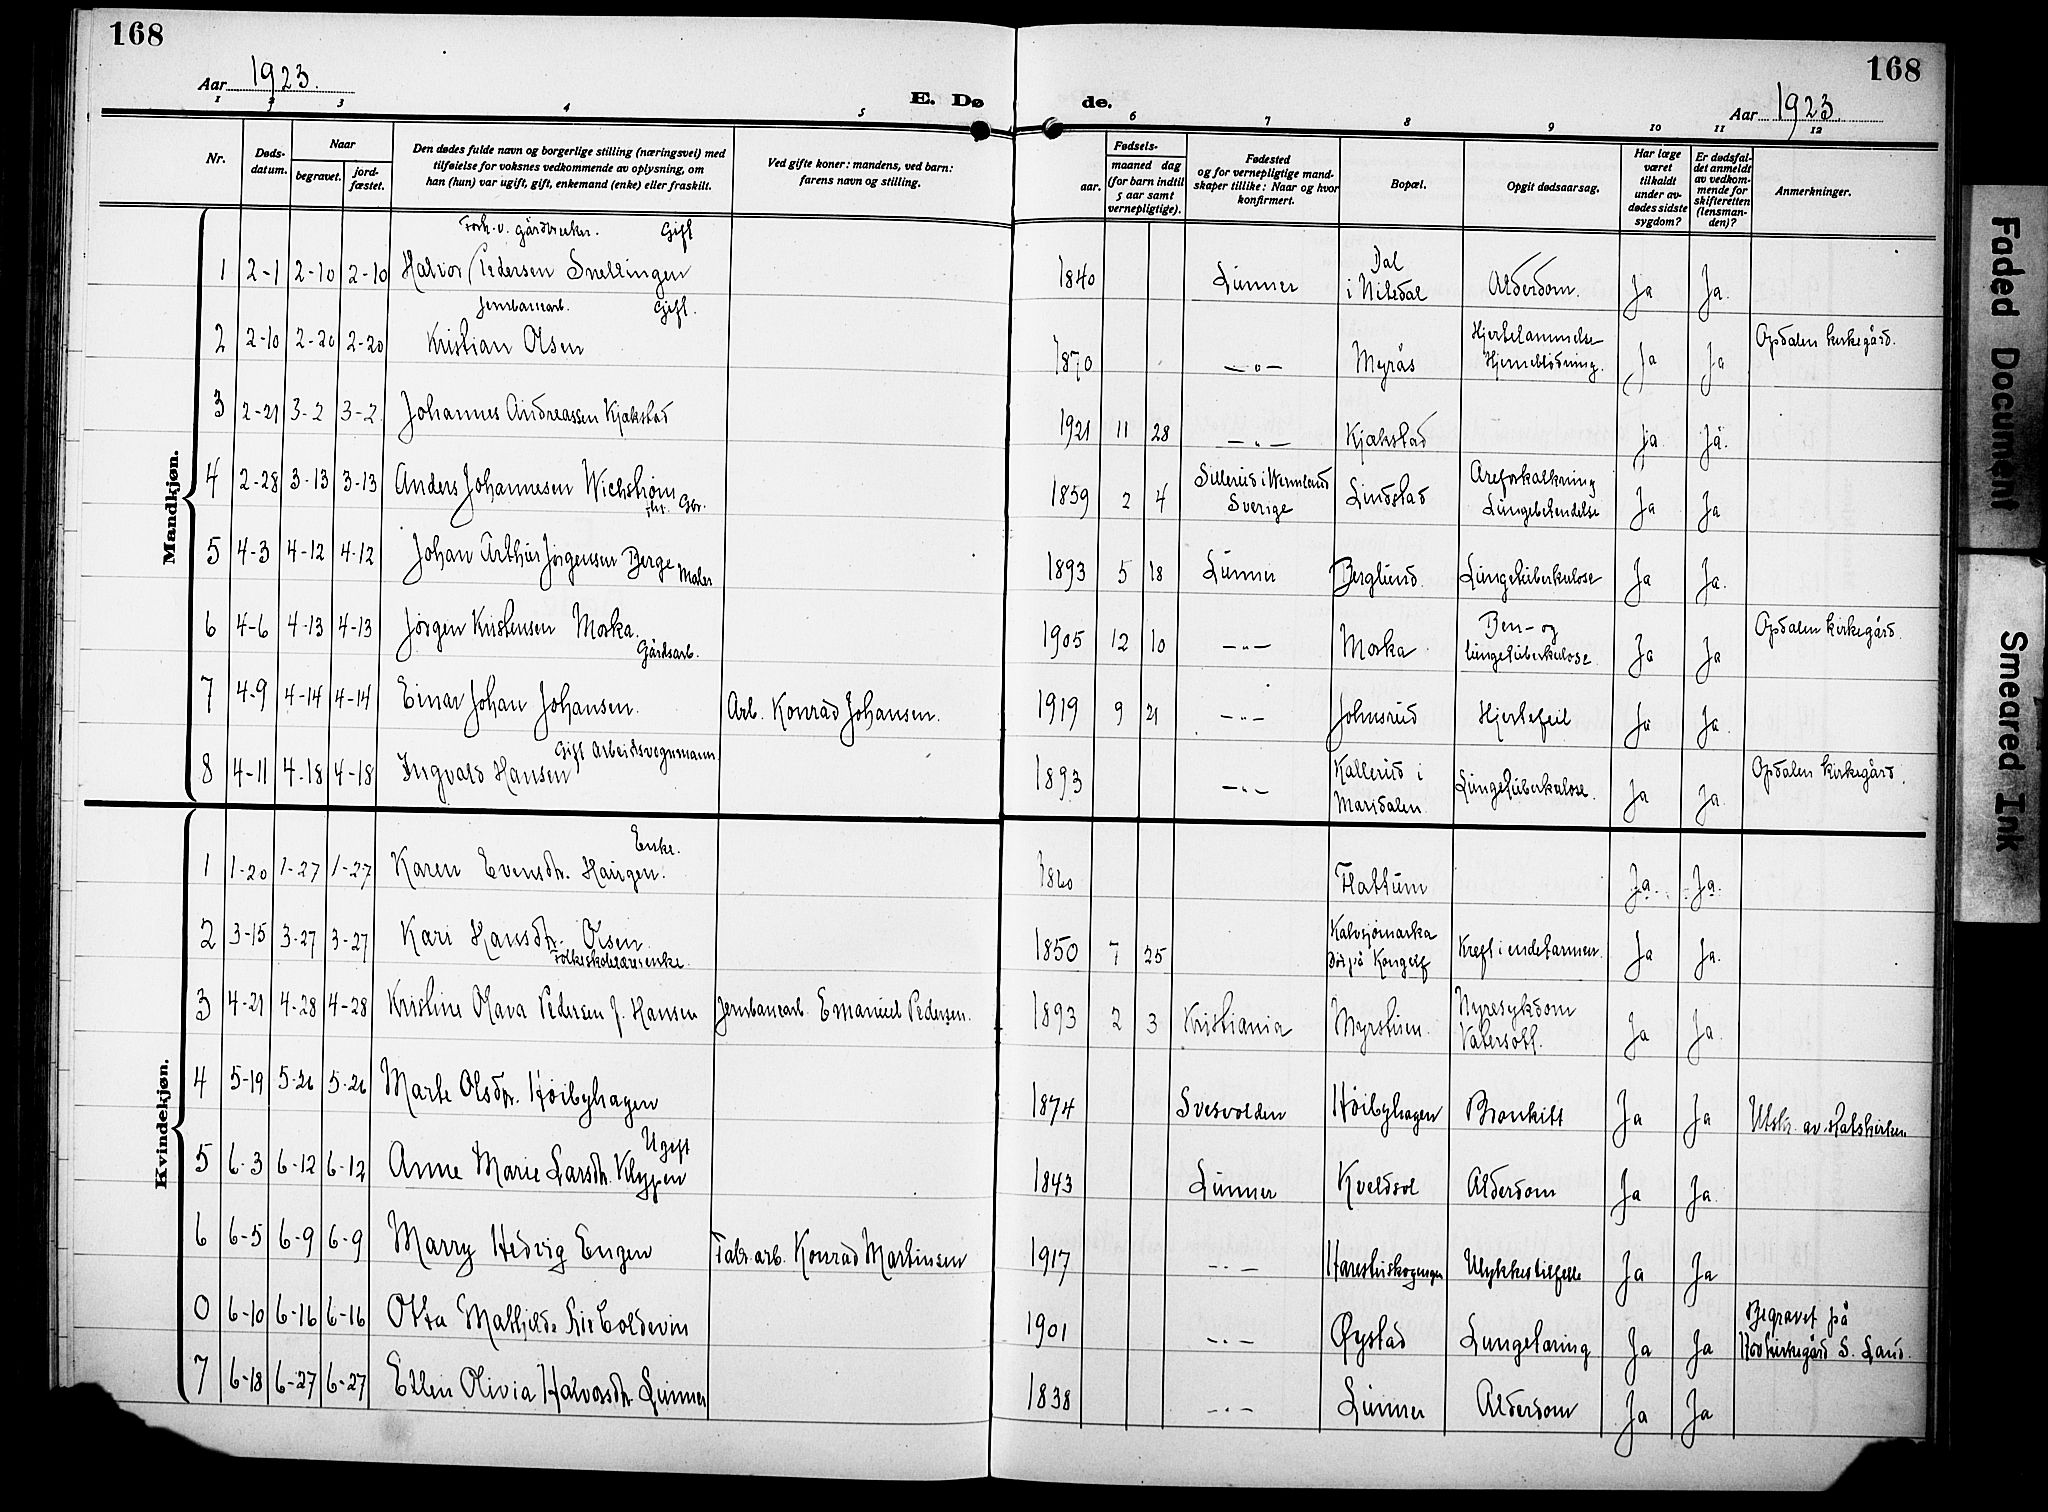 168
168
Aar 1923.
E. Dø de.
Aar 1923
1 2 3 4 5 6 7 8 9 10 11 12
Nr.
Døds-
datum.
Naar
begravet.
jord-
fæstet.
Den dødes fulde navn og borgerlige stilling (næringsvei) med
tilføielse for voksnes vedkommende av oplysning, om
han (hun) var ugift, gift, enkemand (enke) eller fraskilt.
Ved gifte koner: mandens, ved barn:
farens navn og stilling.
Fødsels-
aar.
maaned dag
(for barn indtil
5 aar samt
vernepligtige).
Fødested
og for vernepligtige mand-
skaper tillike: Naar og hvor
konfirmert.
Bopæl.
Opgit dødsaarsag.
Har læge
været
tilkaldt
under av-
dødes sidste
sygdom?
Er dødsfal-
det anmeldt
av vedkom-
mende for
skifteretten
(lensman-
den)?
Anmerkninger.
Mandkjøn.
Forh.v. gårdbruker. Gift
1 2-1 2-10 2-10 Halvor Pedersen Snellingen 1840 Lunner Dal
i Nitedal Alderdom. Ja Ja.
Jernbanearb. Gift.
2 2-10 2-20 2-20 Kristian Olsen 1870 —"— Myrås Hjertelammelse
Hjerneblødning. Ja Ja Opdalen kirkegård.
3 2-21 3-2 3-2 Johannes Andreassen Kjækstad 1921 11 28 —"— Kjækstad Ja Ja.
4 2-28 3-13 3-13 Anders Johannesen Wichstrøm Gbr. 1859 2 4 Sillerud i Wermland
Sverige Lindstad Areforkalkning
Lungebetendelse Ja Ja
5 4-3 4-12 4-12 Johan Arthur Jørgensen Berge Maler 1893 5 18 Lunner Berglund. Lungetuberkulose Ja Ja.
6 4-6 4-13 4-13 Jørgen Kristensen Morka.
Gårdsarb. 1905 12 10 —"— Morka Ben- og
lungetuberkulose. Ja Ja Opdalen kirkegård.
7 4-9 4-14 4-14 Einar Johan Johansen. Arb. Konrad Johansen. 1919 9 21 —"— Johnsrud Hjertefeil Ja Ja.
Gift Arbeidsvognmann
8 4-11 4-18 4-18 Ingvald Hansen 1893 —"— Kallerud i
Maridalen. Lungetuberkulose. Ja Ja. Opdalen kirkegård.
Kvindekjøn.
Enke.
1 1-20 1-27 1-27 Karen Evensdtr. Haugen. 1860 Flattum Ja. Ja.
2 3-15 3-27 3-27 Kari Hansdtr. Olsen.
Folkeskolelærerenke. 1850 7 25 Kalvsjømarka
død på Kreft i endetarmen. Ja Ja.
3 4-21 4-28 4-28 Kristine Olava Pedersen f. Hansen Jernbanearb. Emanuel Pedersen. 1893 2 3 Kristiania Myrstuen. Nyresykdom
Vatersott. Ja Ja.
4 5-19 5-26 5-26 Marte Olsdtr. Høibyhagen 1874 Svesvolden Høibyhagen Bronkitt Ja Ja Utsk. av statskirken
Ugift
5 6-3 6-12 6-12 Anne Marie Larsdtr. Klypen 1843 Lunner Kveldsol Alderdom Ja Ja.
6 6-5 6-9 6-9 Marry Hedvig Engen Fabr.arb. Konrad Martinsen 1917 —"— Harestuskogengen Ulykkestilfelle Ja Ja
0 6-10 6-16 6-16 Otta Mathilde Lie Coldevin 1901 —"— Øystad Lungetæring Ja Ja Begravet på
Hov kirkegård S. Land.
7 6-18 6-27 6-27 Ellen Olivia Halvorsdtr. Lunner 1838 —"— Lunner Alderdom Ja Ja
Faded Document
Smeared Ink